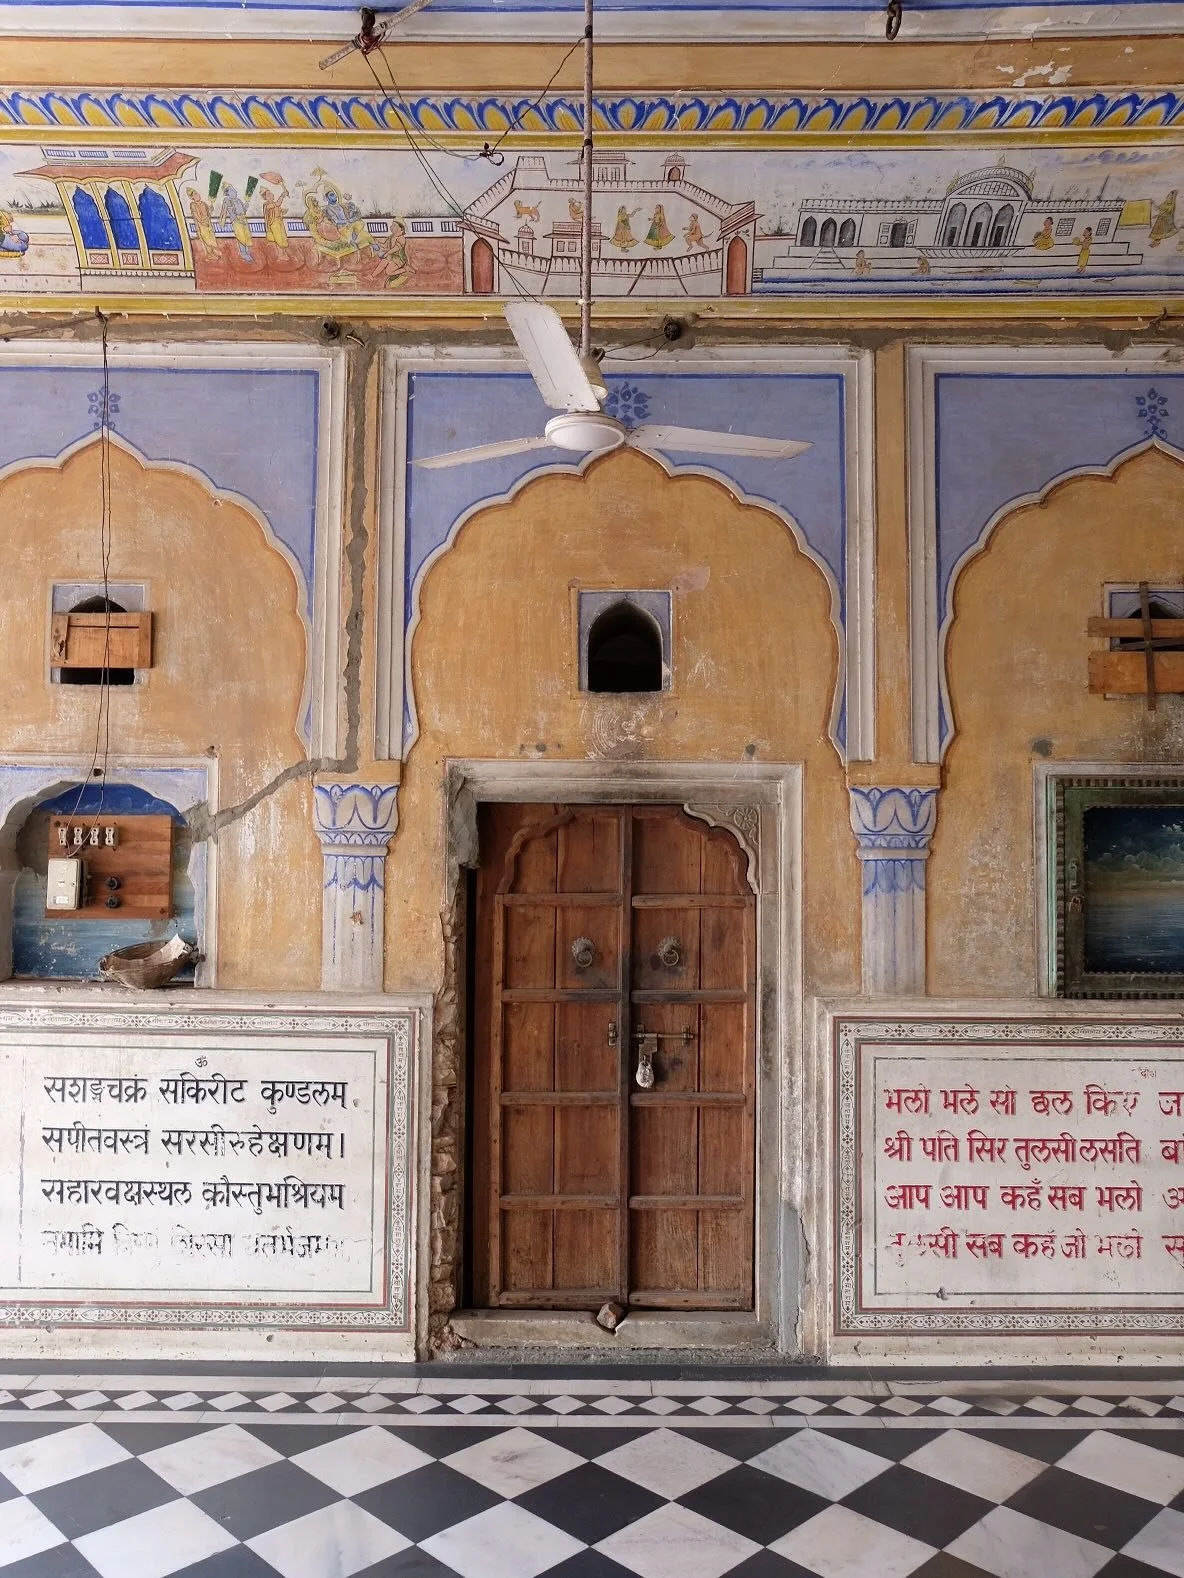 ॐ
सशङ्खचक्रं सकिरीट कुण्डलम्
सपीतवस्त्रं सरसीरुहेक्षणम्।
सहारवक्षस्थल कौस्तुभश्रियम्
नमामि चतुर्भुजम्
भलो भले सो छल किए
श्री पति सिर तुलसी लसति
आप आप कहँ सब भलो
तुलसी सब कहँ जो भलो